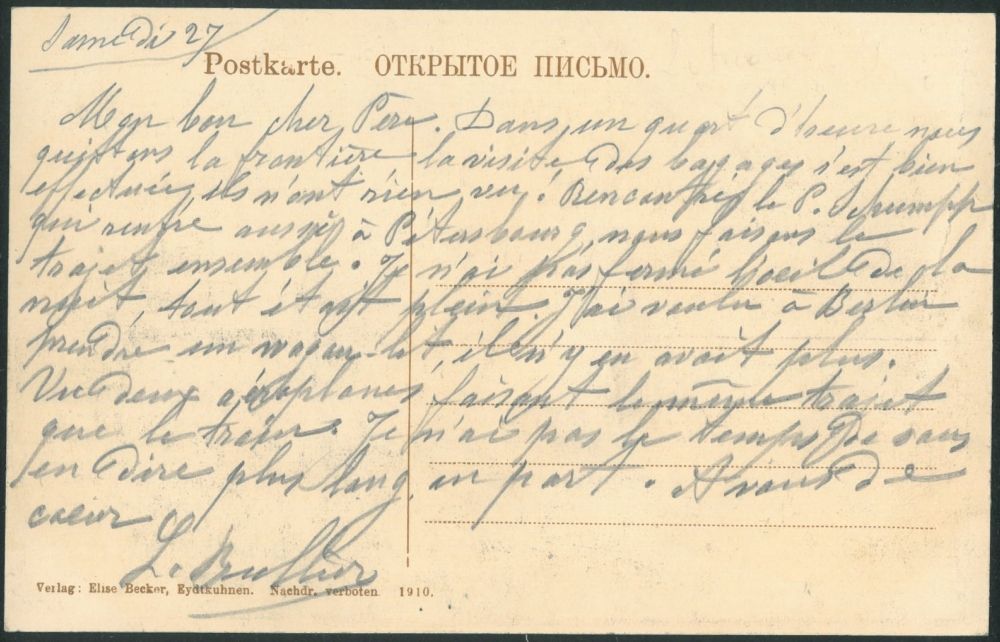 Samedi 27
Postkarte. ОТКРЫТОЕ ПИСЬМО.
Mon bon cher Père. Dans un quart d'heure nous
quittons la frontière la visite des bagages s'est bien
effectuée, ils n'ont rien vu! Rencontré le P. Schumpp
qui rentre aussi à Pétersbourg, nous faisons le
trajet ensemble. Je n'ai pas fermé l'oeil de la
nuit, tout étant plein. J'ai voulu à Berlin
prendre un wagon-lit, il n'y en avait plus.
Vu deux aéroplanes, faisant le même trajet
que le train. Je n'ai pas le temps de vous
en dire plus long, on part. A vous de
coeur
L.
Verlag: Elise Becker, Eydtkuhnen. Nachdr. verboten 1910.